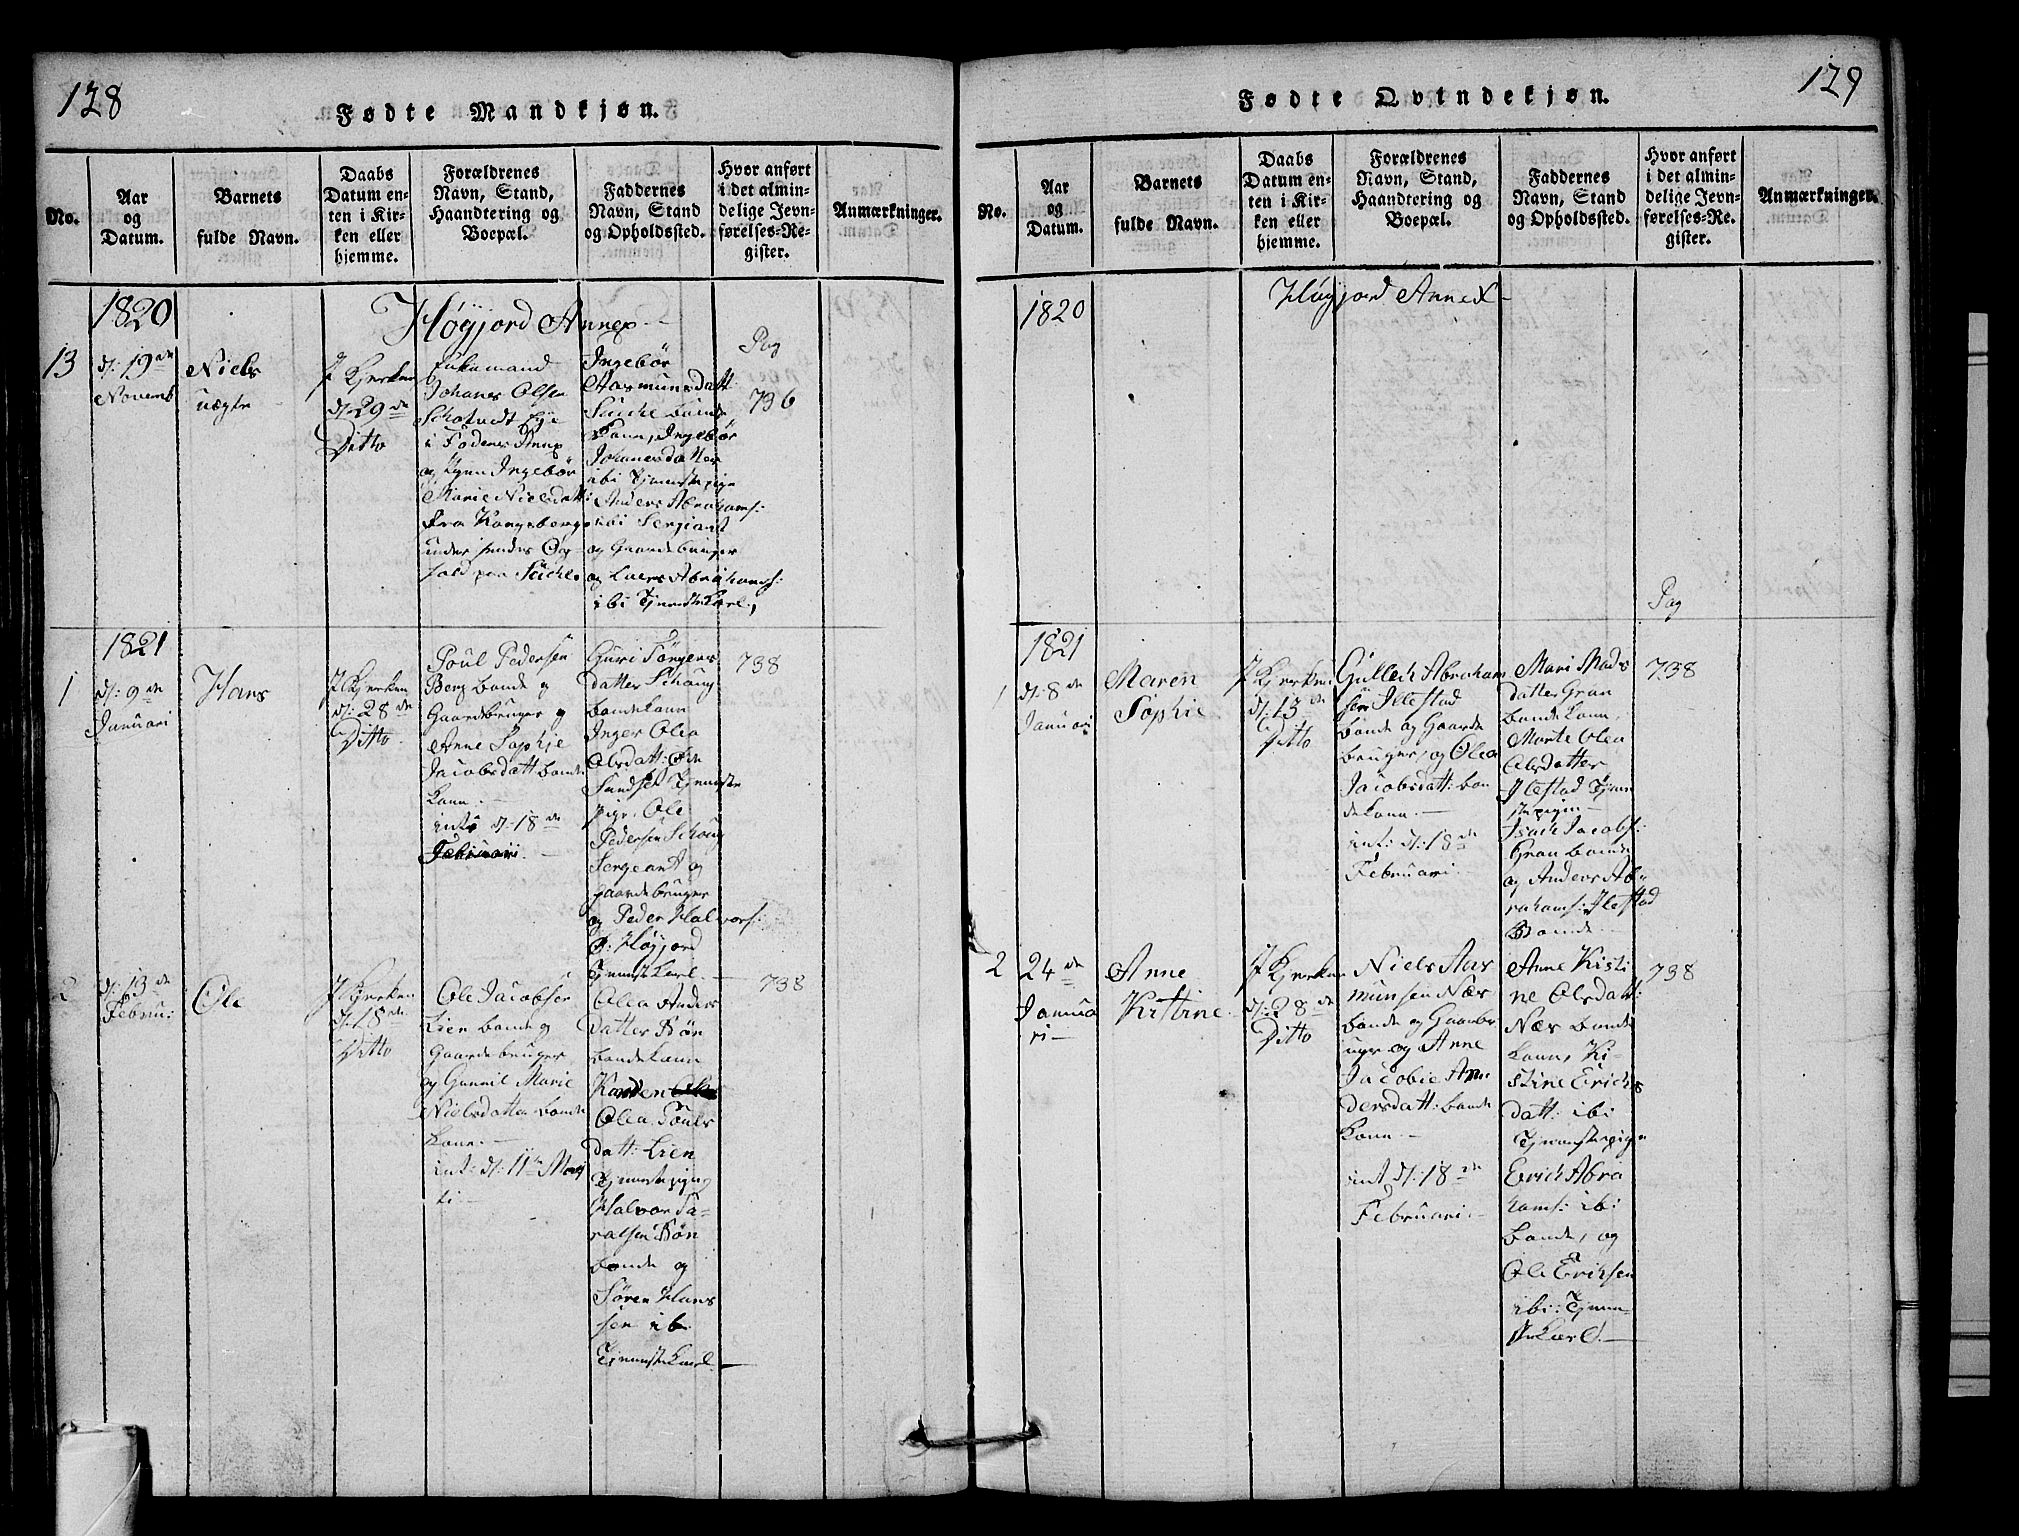 128
Fødte Mandkjøn.
No.
Aar
og
Datum.
Barnets
fulde Navn.
Daabs
Datum en-
ten i Kir-
ken eller
hjemme.
Forældrenes
Navn, Stand,
Haandtering og
Boepæl.
Faddernes
Navn, Stand
og Opholdssted.
Hvor anført
i det almin-
delige Jevn-
førelses-Re-
gister.
Anmærkninger.
1820
Høyjord Annex
13
d: 19de
Novemb
Niels
uægte
I Kjerken
d: 29de
Ditto
Enkemand
Johanes Olsen
i Fodenes Annex
og Ingebør
Marie Nielsdatt:
fra Kongsberg
under hendes Op-
hold paa
Ingebør
Aasmunsdatt:
bonde
kone, Ingebør
Johanesdatter
ibi Tjenestepige
Anders Abrahams:
ibi Sergiant
og Gaardebruger
og Lars Abrahams:
ibi Tjenestekarl,
Pag
736
1821
1
d: 9de
Januari
Hans
I Kjerken
d: 28de
Ditto
Poul Pedersen
Berg bonde og
Gaardbruger og
Anne Sophie
Jacobsdatt bonde
kone.
int: d: 18de
Februari.
Guri Törgers
datter Schoug
bondekone
Inger Olea
Olsdatt:
Sundset Tjeneste
pige, Ole
Pedersen Schoug
Sergeant og
gaardebruger
og Peder Halvors:
Høyjord
Tjenestekarl.
738
2
d: 13de
Februi:
Ole
I Kjerken
d: 18de
Ditto
Ole Jacobsen
Lien bonde og
Gaardebruger
og Gunnil Marie
Nielsdatter bonde
kone.
int: d: 11te Mar
ti
Olea Anders
datter Bön
bondekone
Karen
Olea Pouls
datt: Lien
Tjenestepige
Halvor Ta-
ralsen Bön
bonde og
Søren Hans
sen ibi
Tjenestekarl
738
129
Fødte Qvindekjøn.
No.
Aar
og
Datum.
Barnets
fulde Navn.
Daabs
Datum en-
ten i Kir-
ken eller
hjemme.
Forældrenes
Navn, Stand,
Haandtering og
Boepæl.
Faddernes
Navn, Stand
og Opholdssted.
Hvor anført
i det almin-
delige Jevn-
førelses-Re-
gister.
Anmærkninger.
1820
Høyjord Annex
Pag
1821
1
d: 8de
Januari
Maren
Sophie
I Kjerken
d: 13de
Ditto
Gullech Abraham
sen Illestad
bonde og Gaarde
bruger, og Olea
Jacobsdatt: bon
dekone.
int: d: 18de
Februari.
Mari Mads
datter Gran
bondekone,
Marte Olea
Olsdatter
Ilestad Tjene
stepige
Isach Jacobs:
Gran bonde
og Anders Ab-
rahams: Ilestad
Bonde
738
2
24de
Janua
ri
Anne
Kistine
I Kjerken
d: 28de
Ditto
Niels Aas
munsen Nær
bonde og Gaardbr
uger og Anne
Jacobie An
dersdatt: bonde
kone.
int d: 18de
Februari.
Anne Kisti
ne Olsdatt:
Nær bonde
kone, Ki-
stine Erichs
datt: ibi
Tjenestepige
Erich Abra
hams: ibi
bonde, og
Ole Erichsen
ibi: Tjene-
stekarl.
738